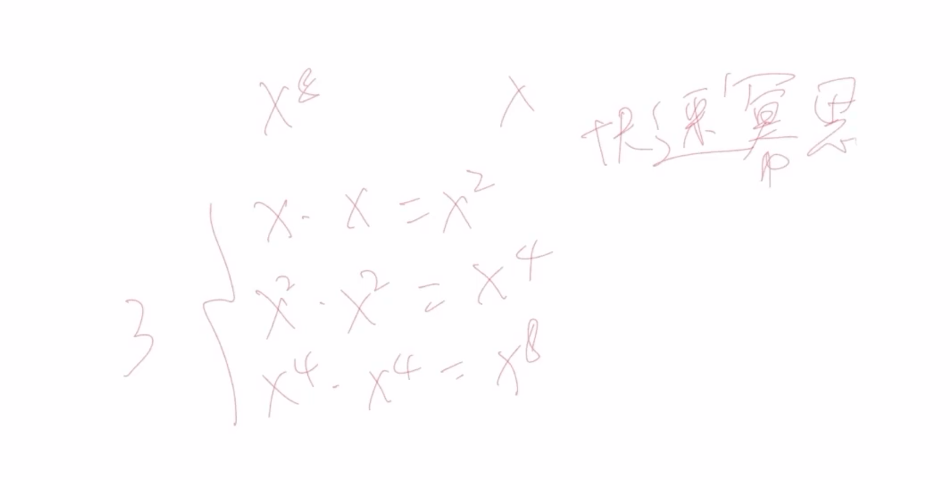 x⁸ x 快速幂思
x · x = x²
x² · x² = x⁴
3
x⁴ · x⁴ = x⁸